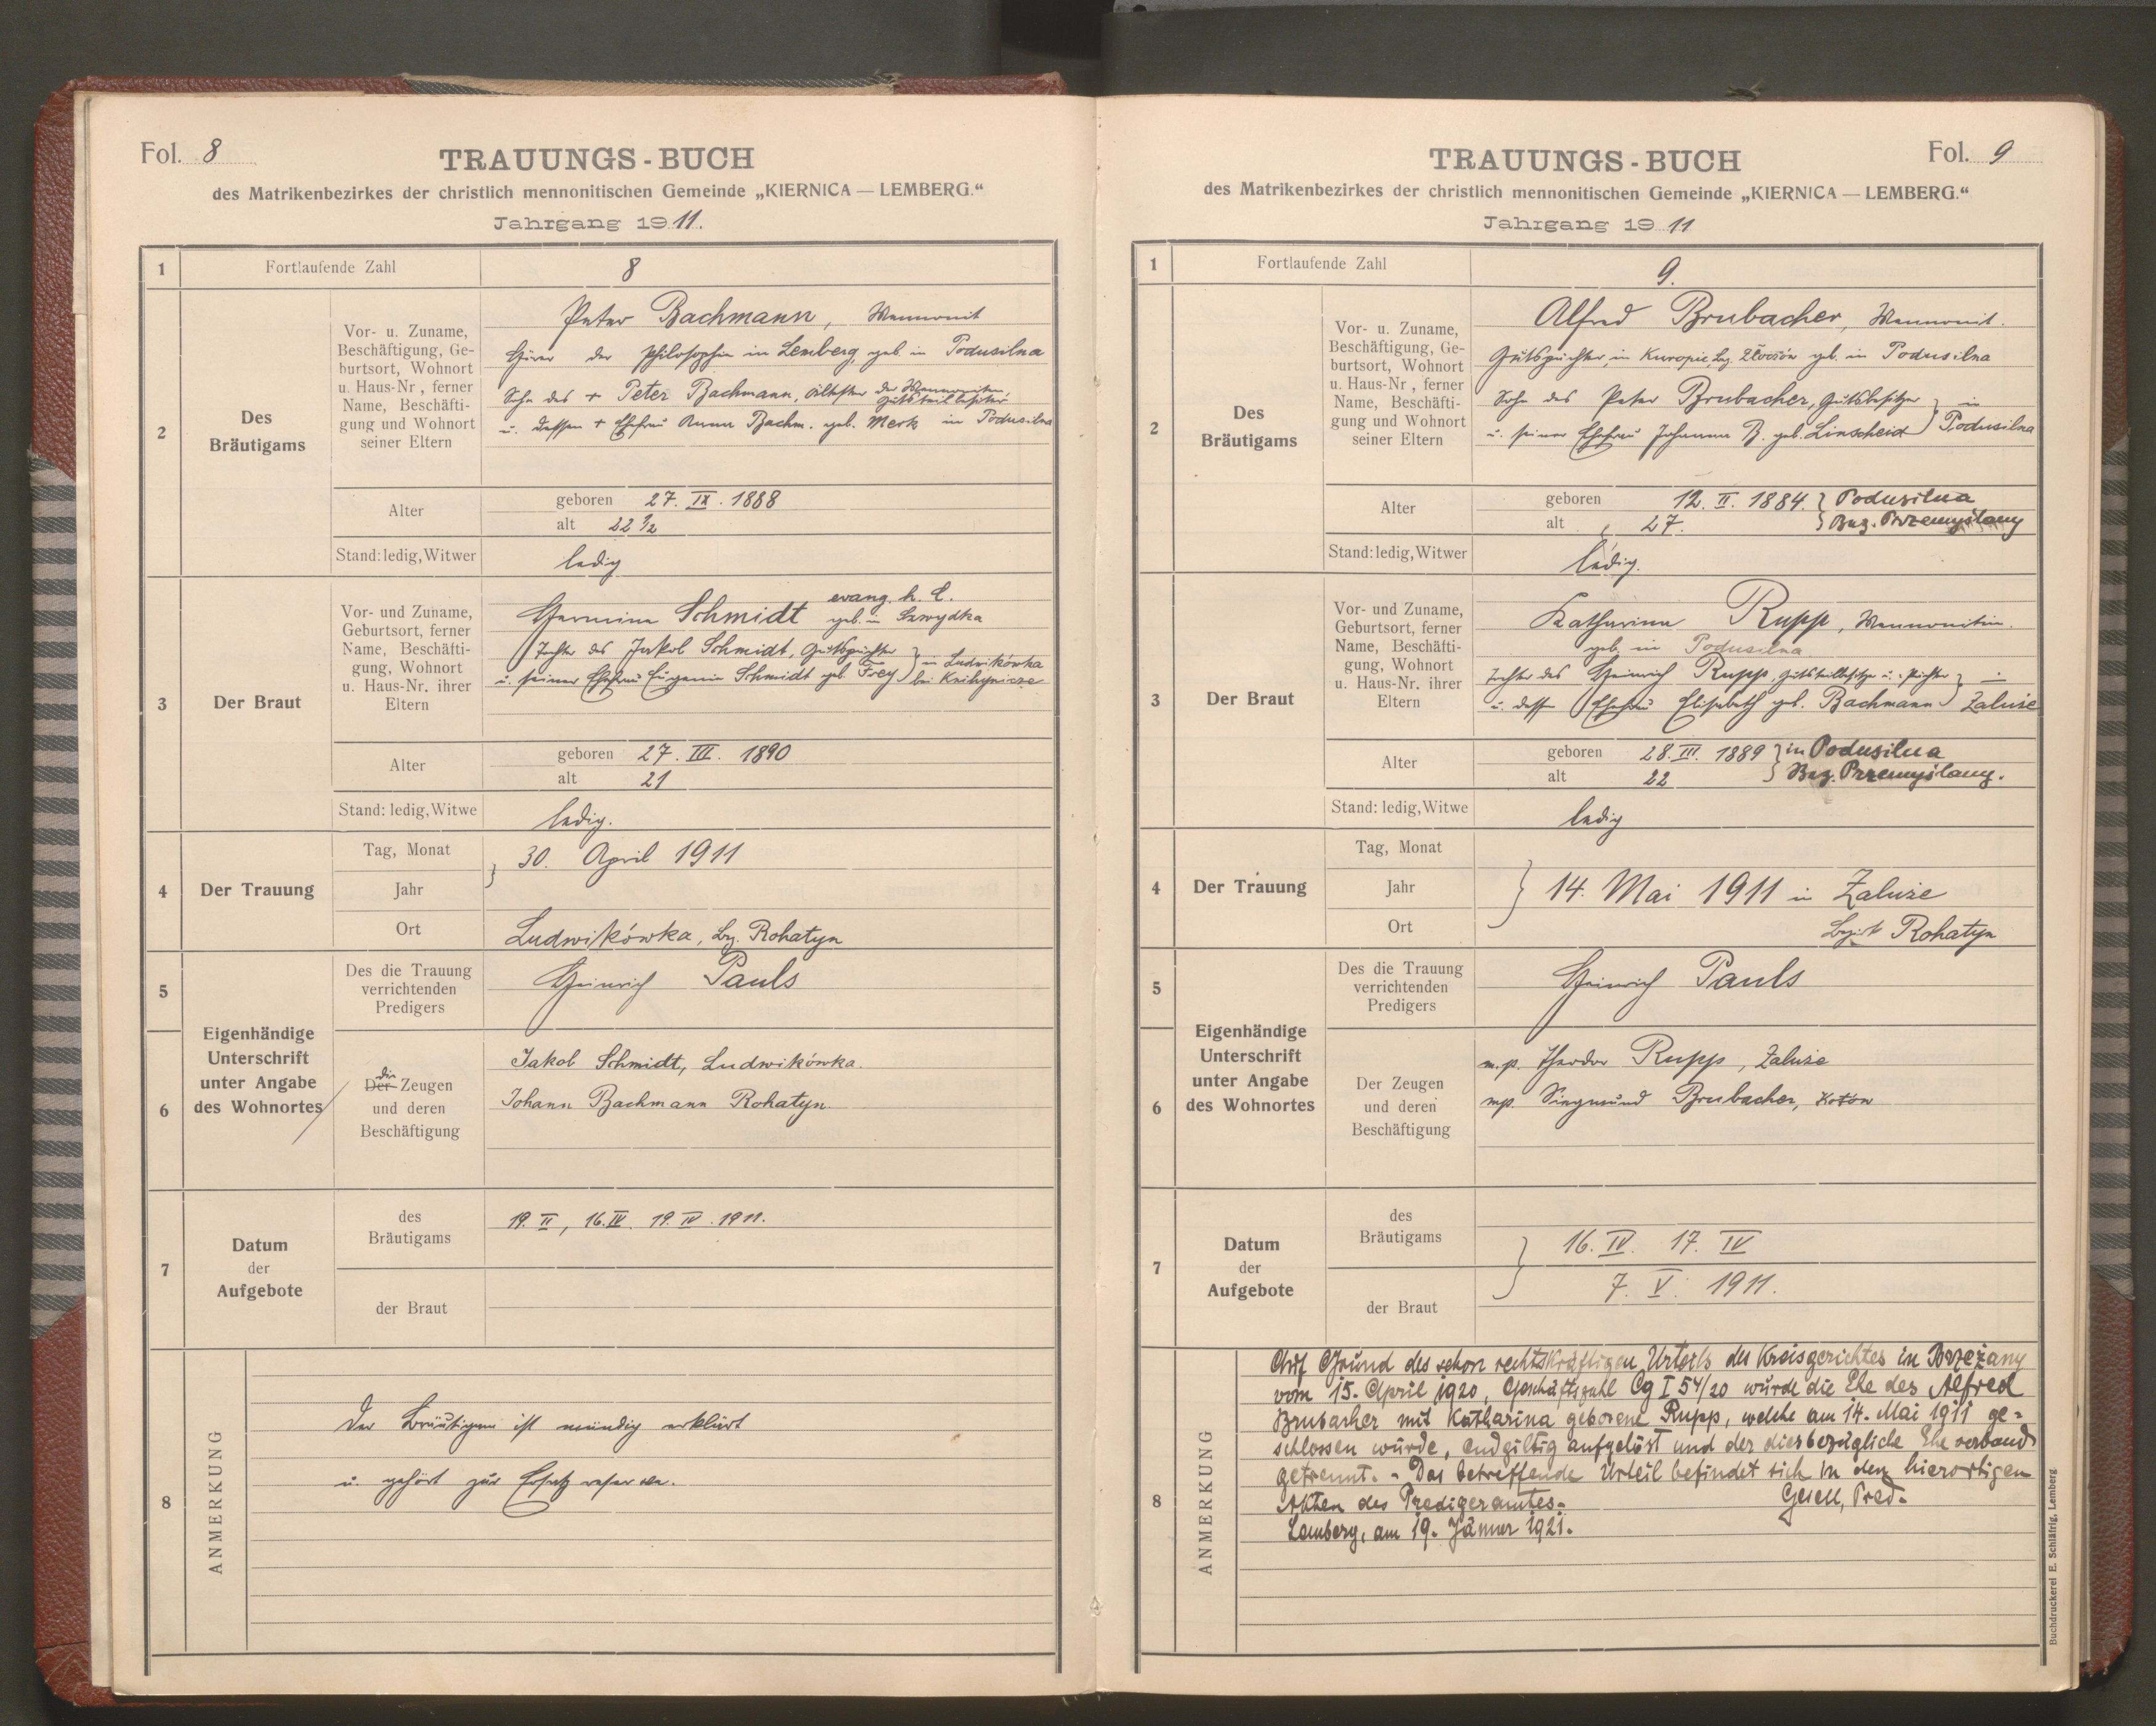 Fol. 8
TRAUUNGS-BUCH
des Matrikenbezirkes der christlich mennonitischen Gemeinde „KIERNICA — LEMBERG.“
Jahrgang 1911.
1 Fortlaufende Zahl 8
2 Des Bräutigams
Vor- u. Zuname,
Beschäftigung, Ge-
burtsort, Wohnort
u. Haus-Nr, ferner
Name, Beschäfti-
gung und Wohnort
seiner Eltern
Peter Bachmann, Mennonit
Hörer der Philosophie in Lemberg, geb. in Podusilna
Sohn des + Peter Bachmann, Ältester der Mennoniten, Gutsteilbesitzer
u. dessen + Ehefrau Anna Bachm. geb. Merk in Podusilna
Alter
geboren 27. IX. 1888
alt 22 1/2
Stand: ledig, Witwer ledig
3 Der Braut
Vor- und Zuname,
Geburtsort, ferner
Name, Beschäfti-
gung, Wohnort
u. Haus-Nr. ihrer
Eltern
evang. h. C.
Hermine Schmidt geb. in
Tochter des Jakob Schmidt, Gutspächter } in Ludwikówka
u. seiner Ehefrau Eugenie Schmidt geb. Frey } bei Knihynicze
Alter
geboren 27. III. 1890
alt 21
Stand: ledig, Witwe ledig.
4 Der Trauung
Tag, Monat
Jahr
} 30. April 1911
Ort Ludwikówka, bz. Rohatyn
5 Des die Trauung
verrichtenden
Predigers
Heinrich Pauls
Eigenhändige
Unterschrift
unter Angabe
des Wohnortes
6 die
Der Zeugen
und deren
Beschäftigung
Jakob Schmidt, Ludwikówka.
Johann Bachmann Rohatyn.
7 Datum
der
Aufgebote
des
Bräutigams
19. II, 16. IV. 19. IV. 1911.
der Braut
8 ANMERKUNG
Der Bräutigam ist mündig erklärt
u. gehört zur Ersatzreserve.
Fol. 9
TRAUUNGS-BUCH
des Matrikenbezirkes der christlich mennonitischen Gemeinde „KIERNICA — LEMBERG.“
Jahrgang 1911
1 Fortlaufende Zahl 9.
2 Des Bräutigams
Vor- u. Zuname,
Beschäftigung, Ge-
burtsort, Wohnort
u. Haus-Nr, ferner
Name, Beschäfti-
gung und Wohnort
seiner Eltern
Alfred Brubacher, Mennonit.
Gutspächter, in Kuropie, bz. Złoczów geb. in Podusilna
Sohn des Peter Brubacher, Gutsbesitzer } in
u. seiner Ehefrau Johanna B. geb. Linscheid } Podusilna
Alter
geboren 12. II. 1884. } Podusilna
alt 27. } Bez. Przemyślany
Stand: ledig, Witwer ledig.
3 Der Braut
Vor- und Zuname,
Geburtsort, ferner
Name, Beschäfti-
gung, Wohnort
u. Haus-Nr. ihrer
Eltern
Katharina Rupp, Mennonitin.
geb. in Podusilna
Tochter des Heinrich Rupp, Gutsteilbesitzer u. -Pächter } in
u. dess. Ehefrau Elisabeth geb. Bachmann } Załuże
Alter
geboren 28. III. 1889 } in Podusilna
alt 22 } Bez. Przemyślany.
Stand: ledig, Witwe ledig
4 Der Trauung
Tag, Monat
Jahr
Ort
} 14. Mai 1911 in Załuże
Bezirk Rohatyn
5 Des die Trauung
verrichtenden
Predigers
Heinrich Pauls
Eigenhändige
Unterschrift
unter Angabe
des Wohnortes
6 Der Zeugen
und deren
Beschäftigung
m.p. Theodor Rupp, Załuże
mp. Siegmund Brubacher, Kotów
7 Datum
der
Aufgebote
des
Bräutigams
der Braut
} 16. IV. 17. IV
7. V. 1911.
8 ANMERKUNG
Auf Grund des schon rechtskräftigen Urteils des Kreisgerichtes in Brzeżany
vom 15. April 1920, Geschäftszahl Cg I 54/20 wurde die Ehe des Alfred
Brubacher mit Katharina geborene Rupp, welche am 14. Mai 1911 ge-
schlossen wurde, endgiltig aufgelöst und der diesbezügliche Eheverband
getrennt. - Das betreffende Urteil befindet sich in den hierortigen
Akten des Predigeramtes.- Gesell, Pred.
Lemberg, am 19. Jänner 1921.
Buchdruckerei E. Schläfrig, Lemberg